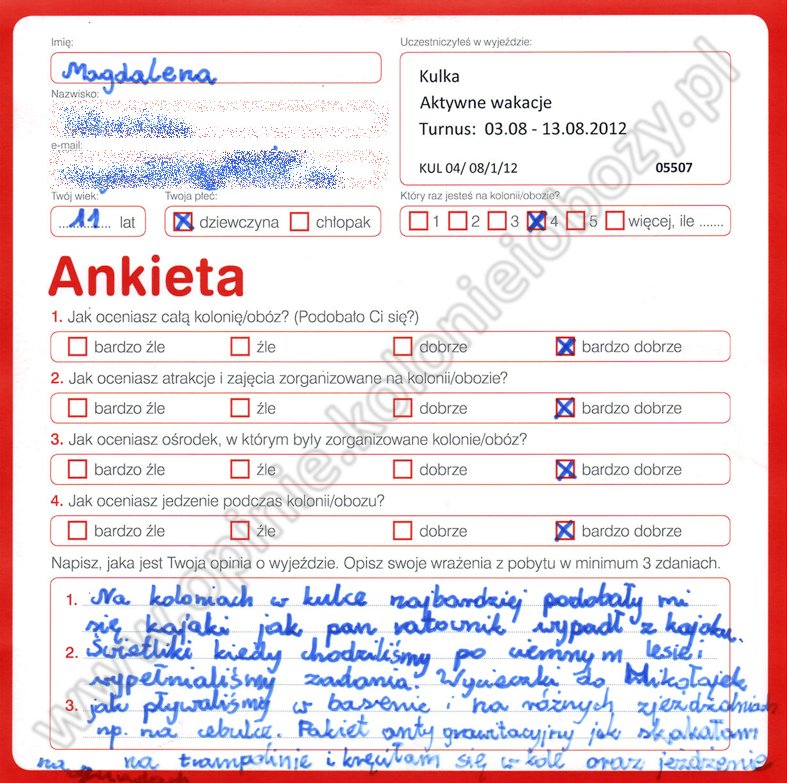 Imię:
Magdalena
Nazwisko:
e-mail:
Twój wiek:
11 lat
Twoja płeć:
dziewczyna chłopak
Uczestniczyłeś w wyjeździe:
Kulka
Aktywne wakacje
Turnus: 03.08 - 13.08.2012
KUL 04/ 08/1/12 05507
Który raz jesteś na kolonii/obozie?
1 2 3 4 5 więcej, ile .......
Ankieta
1. Jak oceniasz całą kolonię/obóz? (Podobało Ci się?)
bardzo źle źle dobrze bardzo dobrze
2. Jak oceniasz atrakcje i zajęcia zorganizowane na kolonii/obozie?
bardzo źle źle dobrze bardzo dobrze
3. Jak oceniasz ośrodek, w którym były zorganizowane kolonie/obóz?
bardzo źle źle dobrze bardzo dobrze
4. Jak oceniasz jedzenie podczas kolonii/obozu?
bardzo źle źle dobrze bardzo dobrze
Napisz, jaka jest Twoja opinia o wyjeździe. Opisz swoje wrażenia z pobytu w minimum 3 zdaniach.
1. Na koloniach w kulce najbardziej podobały mi
się kajaki jak pan ratownik wypadł z kajaku.
2. Świetliki kiedy chodziliśmy po ciemnym lesie i
wypełnialiśmy zadania. Wycieczki do Mikołajek
3. jak pływaliśmy w basenie i na różnych zjeżdżalniach
np. na cebulce. Pakiet anty grawitacyjny jak skakałam
na trampolinie i kręciłam się w kole oraz jeżdżenie
na
www.opinie.kolonieiobozy.pl